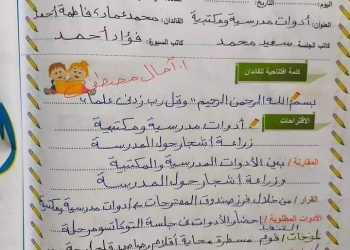 اليوم: التاريخ:
العنوان: أدوات مدرسية ومكتبية القائدان: محمد عماد / فاطمة أحمد
كاتب الجلسة سعيد محمد كاتب السبورة: فؤاد أحمد
أ. آمال مصطفى
كلمة افتتاحية للقائدان
بسم الله الرحمن الرحيم "وقل رب زدنى علما"
الاقتراحات
أدوات مدرسية ومكتبية
زراعة أشجار حول المدرسة
المقارنة / بين الأدوات المدرسية والمكتبية
وزراعة أشجار حول المدرسة
القرار / من خلال فرز صندوق المقترحات أدوات مدرسية ومكتبية
الأدوات المطلوبة / إحضار الأدوات فى جلسة التوكاتسو مرحلة
التنفيذ
فوم مسطرة محاية أقلام رصاص